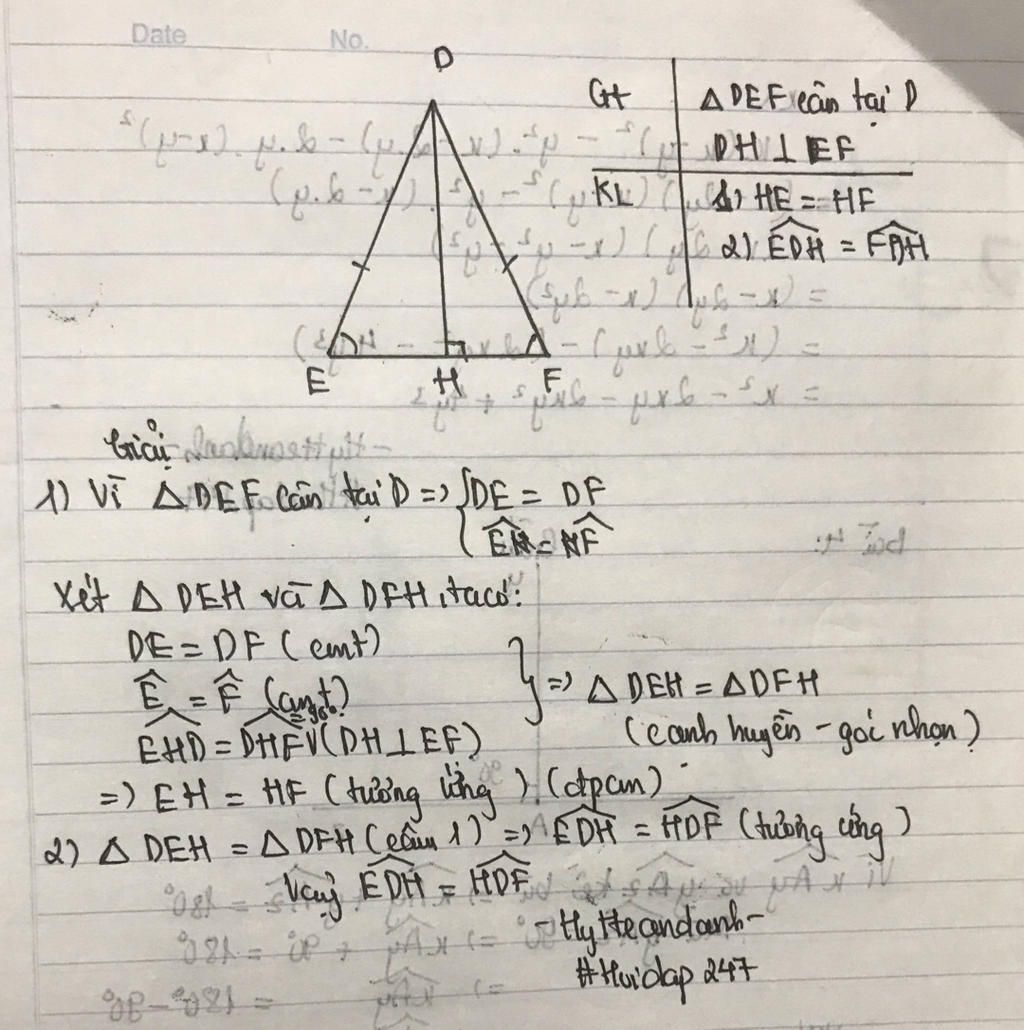 Date No.
D
E H F
Gt △DEF cân tại D
DH⊥EF
KL 1) HE = HF
2) \widehat{EDH} = \widehat{FDH}
Giải
1) Vì △DEF cân tại D => { DE = DF
\widehat{E} = \widehat{F}
Xét △ DEH và △ DFH, ta có:
DE = DF (cmt)
\widehat{E} = \widehat{F} (cmt)
\widehat{EHD} = \widehat{DHF} = 90° (DH⊥EF)
} => △ DEH = △DFH
(cạnh huyền - góc nhọn)
=> EH = HF (tương ứng) (đpcm)
2) △ DEH = △DFH (câu 1) => \widehat{EDH} = \widehat{HDF} (tương ứng)
Vậy \widehat{EDH} = \widehat{HDF}
-HyHeandanh-
#Hoidap 247